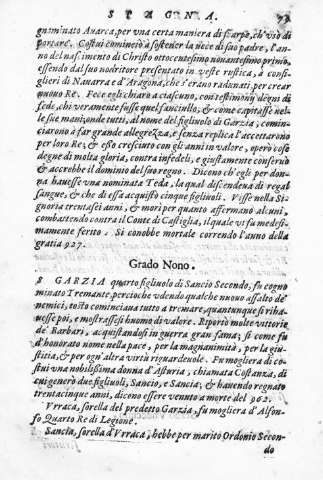 SPAGNA.
gnominato Auarca, per vna certa maniera di scarpe, ch'vsò di
portare. Costui cominciò a sostener la uece di suo padre, l'an-
no del nascimento di Christo ottocentesimo nonantesimo primo,
essendo dal suo nodritore presentato in veste rustica, à consi-
glieri di Nauarra e d'Aragona, che s'erano radunati, per crear
nuouo Re. Fece egli chiaro a ciascuno, con testimonij degni di
fede, chi veramente fusse quel fanciullo, & come capitasse nel-
le sue mani, onde tutti, al nome del figliuolo di Garzia, comin-
ciarono à far grande allegrezza, e senza replica l'accettarono
per loro Re, & esso cresciuto con gli anni in valore, operò cose
degne di molta gloria, contra infedeli, e giustamente conseruò
& accrebbe il dominio del suo regno. Dicono ch'egli per don-
na hauesse vna nominata Teda, la qual discendeua di regal
sangue, & che di essa acquistò cinque figliuoli. Visse nella Si-
gnoria trentasei anni, & morì per quanto affermano alcuni,
combattendo contra il Conte di Castiglia, il quale vi fu mede-
simamente ferito. Si conobbe mortale correndo l'anno della
gratia 927.
Grado Nono.
8 GARZIA quarto figliuolo di Sancio Secondo, fu cogno
minato Tremante, percioche vdendo qualche nuouo assalto de'
nemici, tosto cominciaua tutto a tremare, quantunque si riha-
uesse poi, e mostrassesi huomo di valore. Riportò molte vittorie
de' Barbari, acquistandosi in guerra gran fama; si come fu
d'honorato nome nella pace, per la magnanimità, per la giu-
stitia, & per ogn'altra virtù riguardeuole. Fu mogliera di co-
stui vna nobilissima donna d'Asturia, chiamata Costanza, di
cui generò due figliuoli, Sancio, e Sancia; & hauendo regnato
trentacinque anni, dicono essere venuto a morte del 962.
Vrraca, sorella del predetto Garzia, fu mogliera d'Alfon-
so Quarto Re di Legione.
Sancia, sorella d'Vrraca, hebbe per marito Ordonio Secon-
do